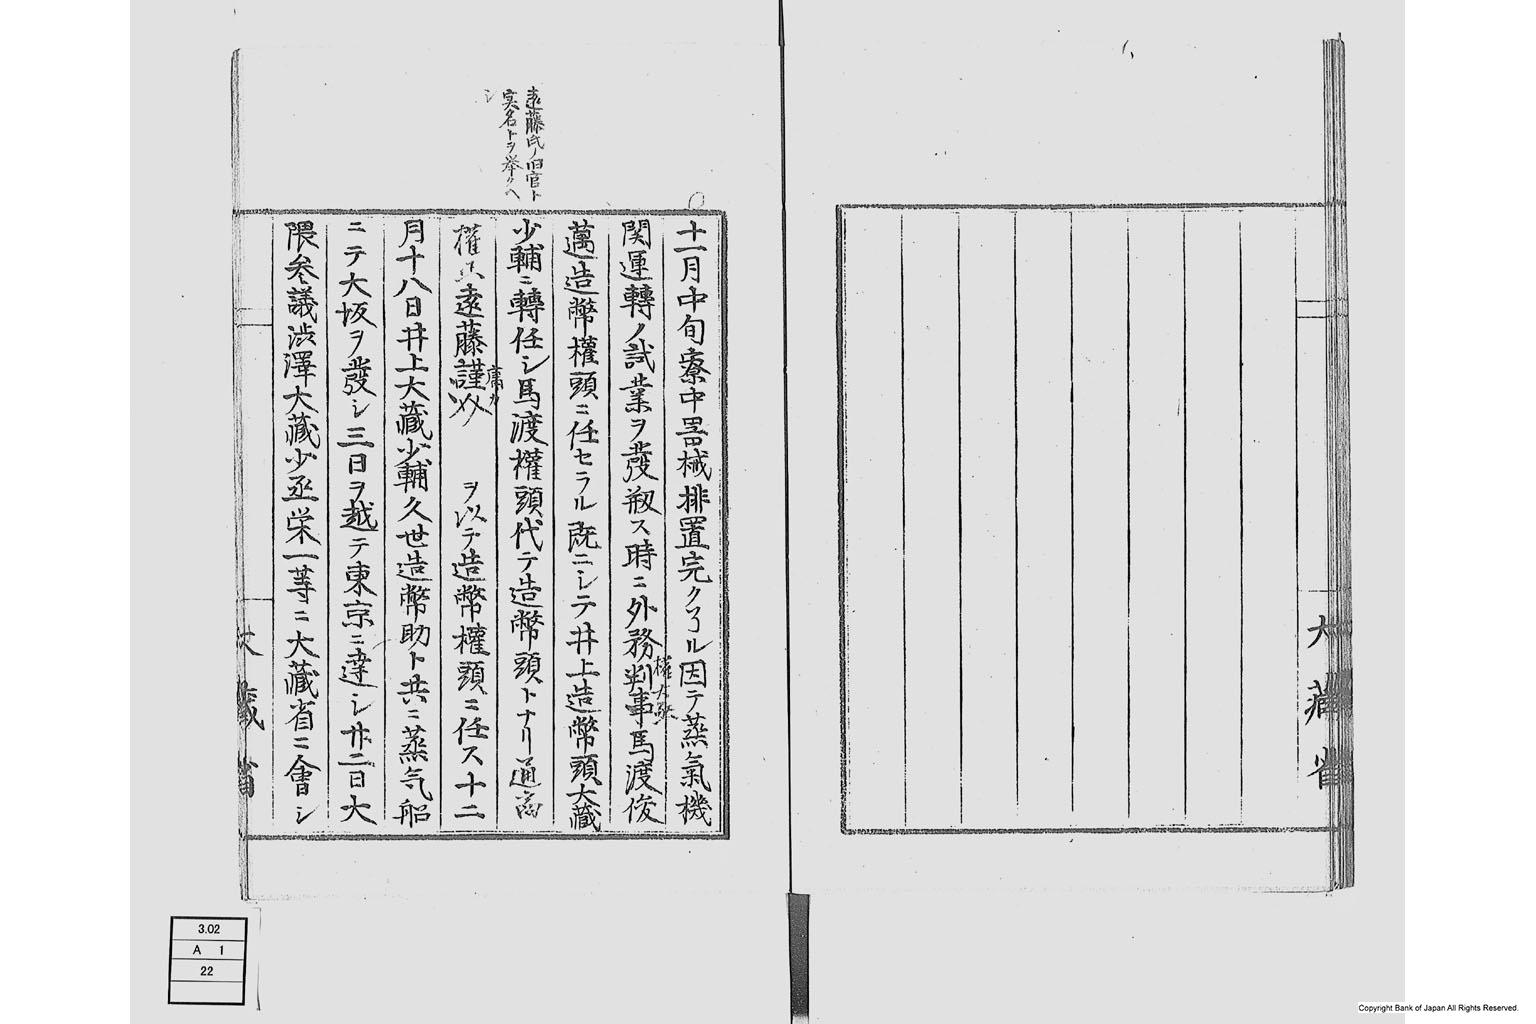 大藏省
遠藤氏ノ旧官ト
実名トヲ挙クヘ
シ
十一月中旬寮中器械排置完クノル因テ蒸氣機
関運轉ノ試業ヲ發靱ス時ニ外務判事馬渡俊
邁造幣權頭ニ任セラル既ニシテ井上造幣頭大藏
少輔ニ轉任シ馬渡權頭代テ造幣頭トナリ通商
權 遠藤謹 ヲ以テ造幣權頭ニ任ス十二
月十八日井上大藏少輔久世造幣助ト共ニ蒸気船
ニテ大坂ヲ發シ三日ヲ越テ東京ニ達シ廿二日大
隈参議渋澤大藏少丞栄一等ニ大藏省ニ會シ
大藏省
3.02
A 1
22
Copyright Bank of Japan All Rights Reserved.